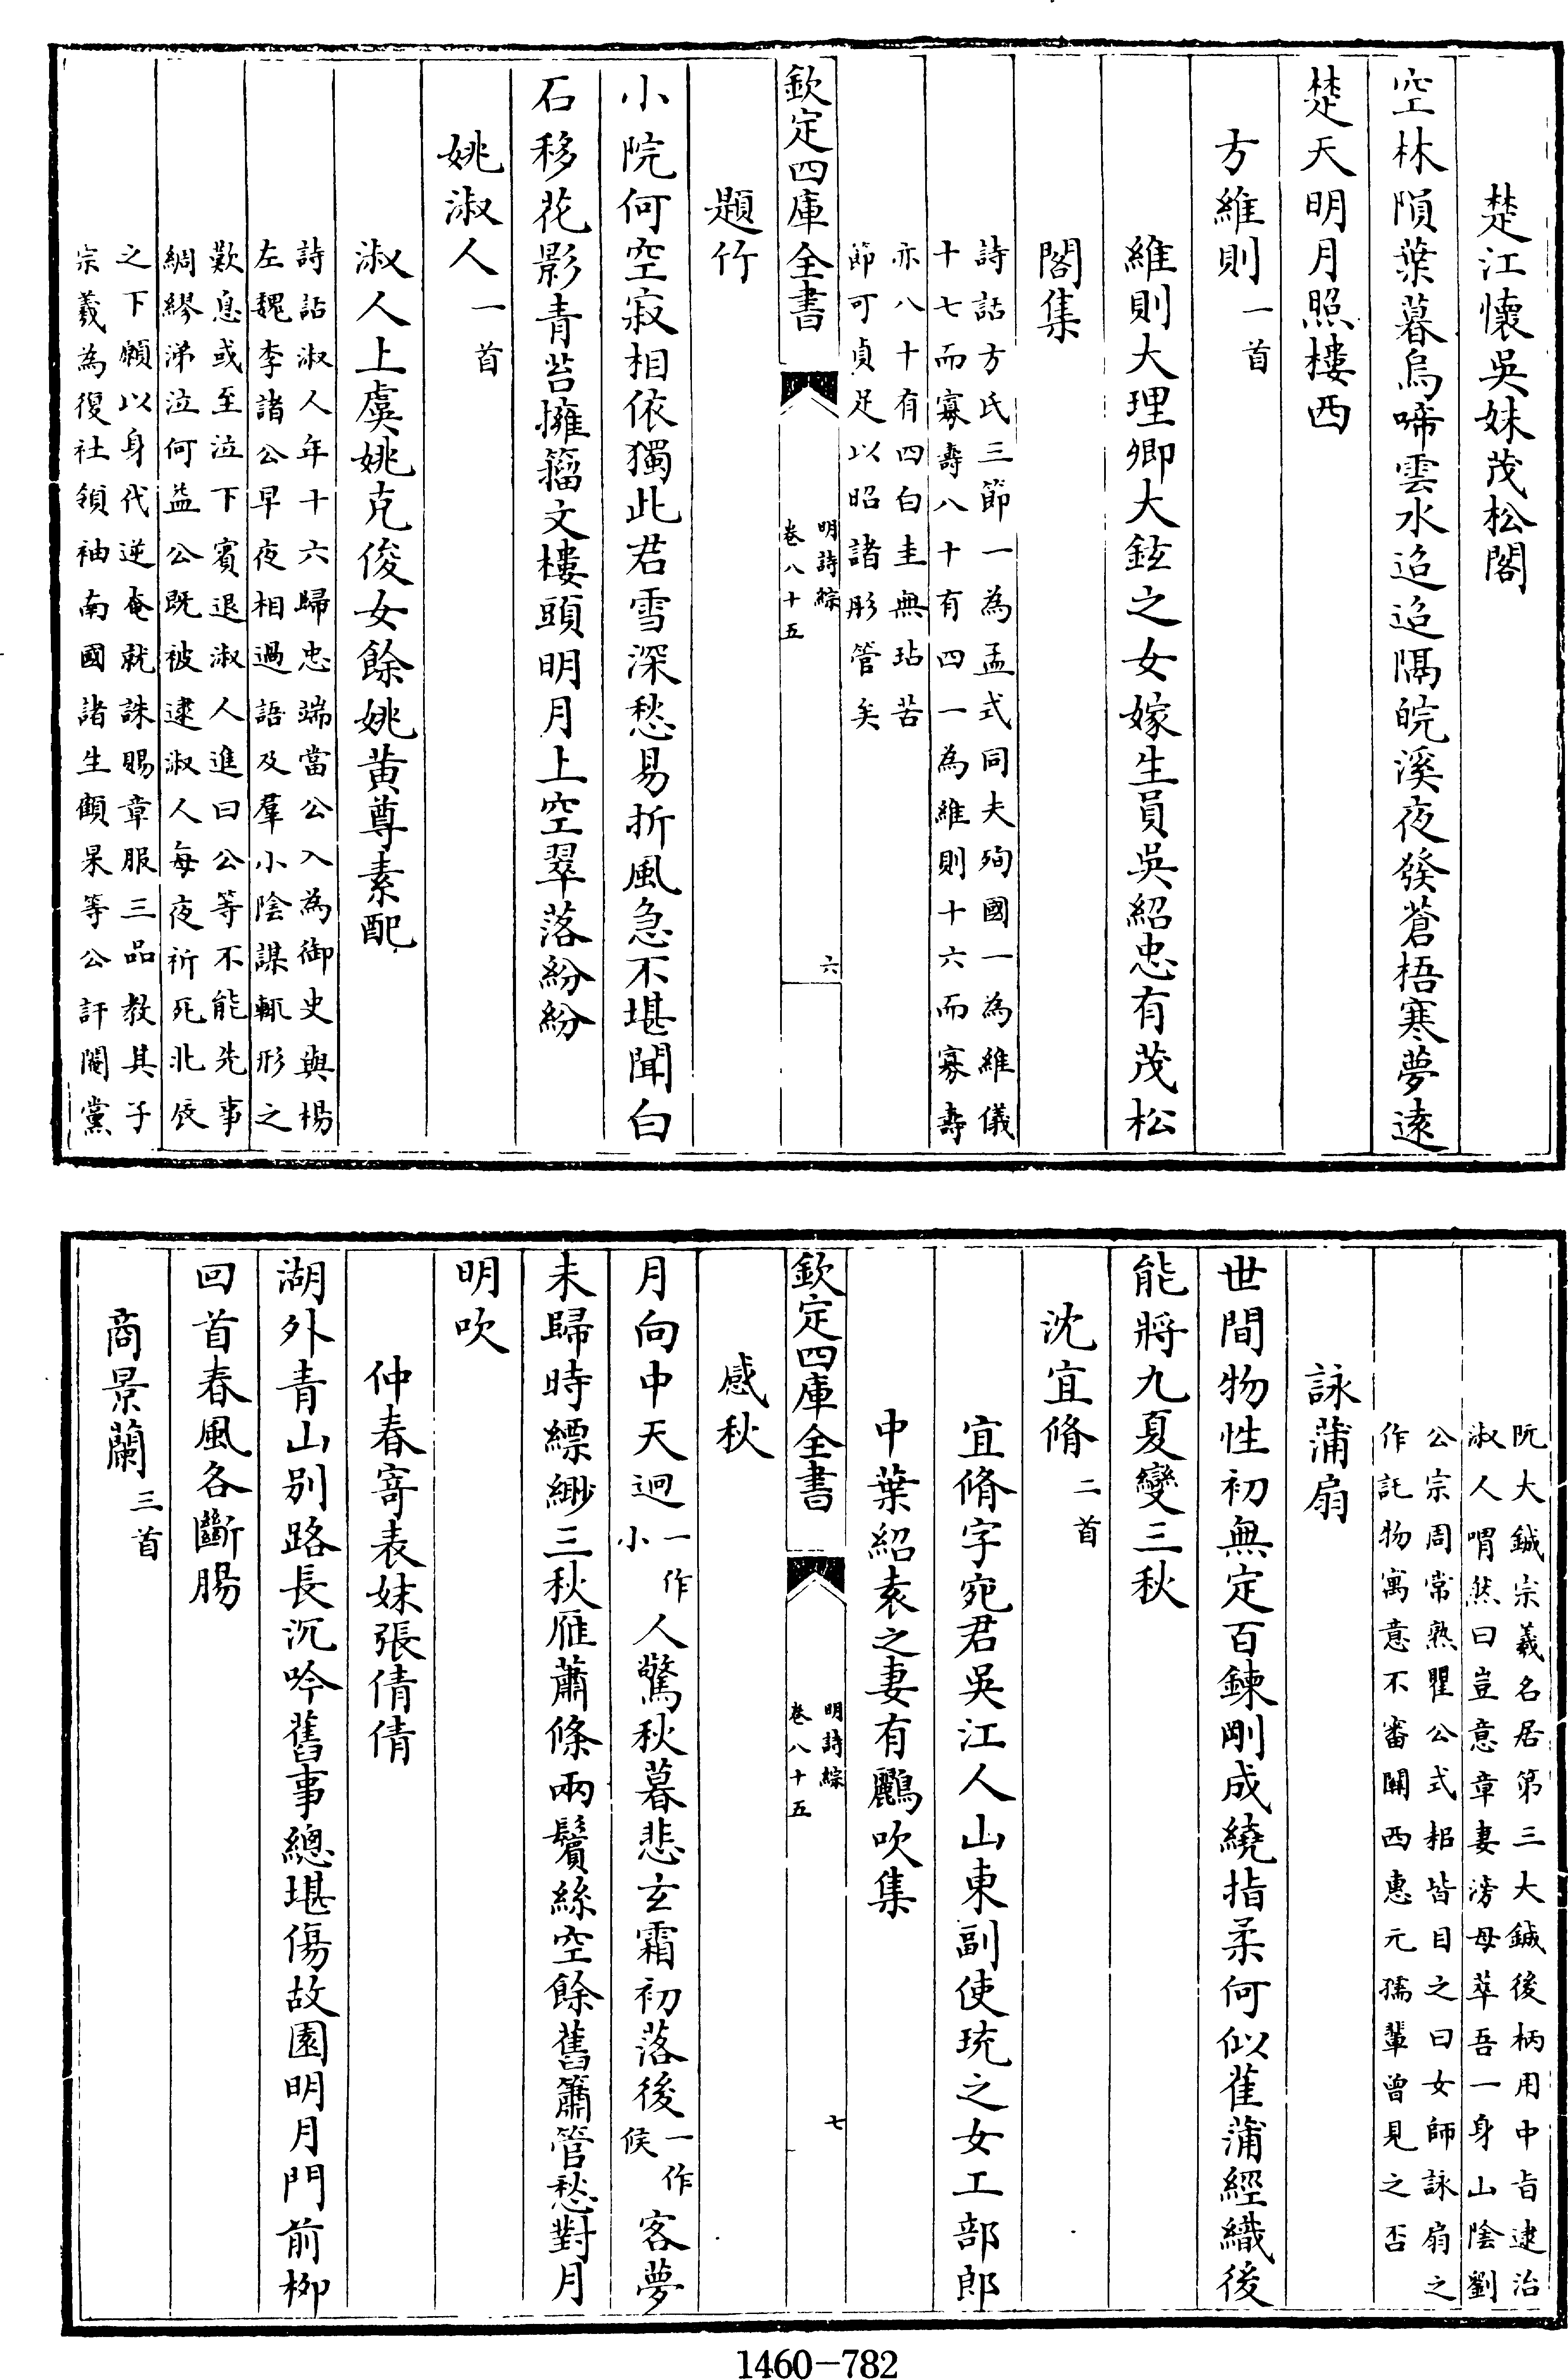 楚江懷吳妹茂松閣
空林隕葉暮烏啼雲水迢迢隔皖溪夜發蒼梧寒夢遠
楚天明月照樓西
方維則一首
維則大理卿大鉉之女嫁生員吳紹忠有茂松
閣集
詩話方氏三節一為孟式同夫殉國一為維儀
十七而寡壽八十有四一為維則十六而寡壽
亦八十有四白圭無玷苦
節可貞足以昭諸彤管矣
欽定四庫全書
明詩綜
卷八十五
六
題竹
小院何空寂相依獨此君雪深愁易折風急不堪聞白
石移花影青苔擁籀文樓頭明月上空翠落紛紛
姚淑人一首
淑人上虞姚克俊女餘姚黄尊素配
詩話淑人年十六歸忠端當公入為御史與楊
左魏李諸公早夜相過語及羣小陰謀輒形之
歎息或至泣下賓退淑人進曰公等不能先事
綢繆涕泣何益公既被逮淑人每夜祈死北辰
之下願以身代逆奄就誅賜章服三品教其子
宗羲為復社領袖南國諸生顧杲等公訐閹黨
阮大鋮宗羲名居第三大鋮後柄用中旨逮治
淑人喟然曰豈意章妻滂母萃吾一身山陰劉
公宗周常熟瞿公式耜皆目之曰女師詠扇之
作託物寓意不審關西惠元孺輩曾見之否
詠蒲扇
世間物性初無定百鍊剛成繞指柔何似萑蒲經織後
能將九夏變三秋
沈宜脩二首
宜脩字宛君吳江人山東副使珫之女工部郎
中葉紹袁之妻有鸝吹集
欽定四庫全書
明詩綜
卷八十五
七
感秋
月向中天迥一作小人驚秋暮悲玄霜初落後一作候客夢
未歸時縹緲三秋雁蕭條兩鬢絲空餘舊簫管愁對月
明吹
仲春寄表妹張倩倩
湖外青山别路長沉吟舊事總堪傷故園明月門前柳
回首春風各斷腸
商景蘭三首
1460-782